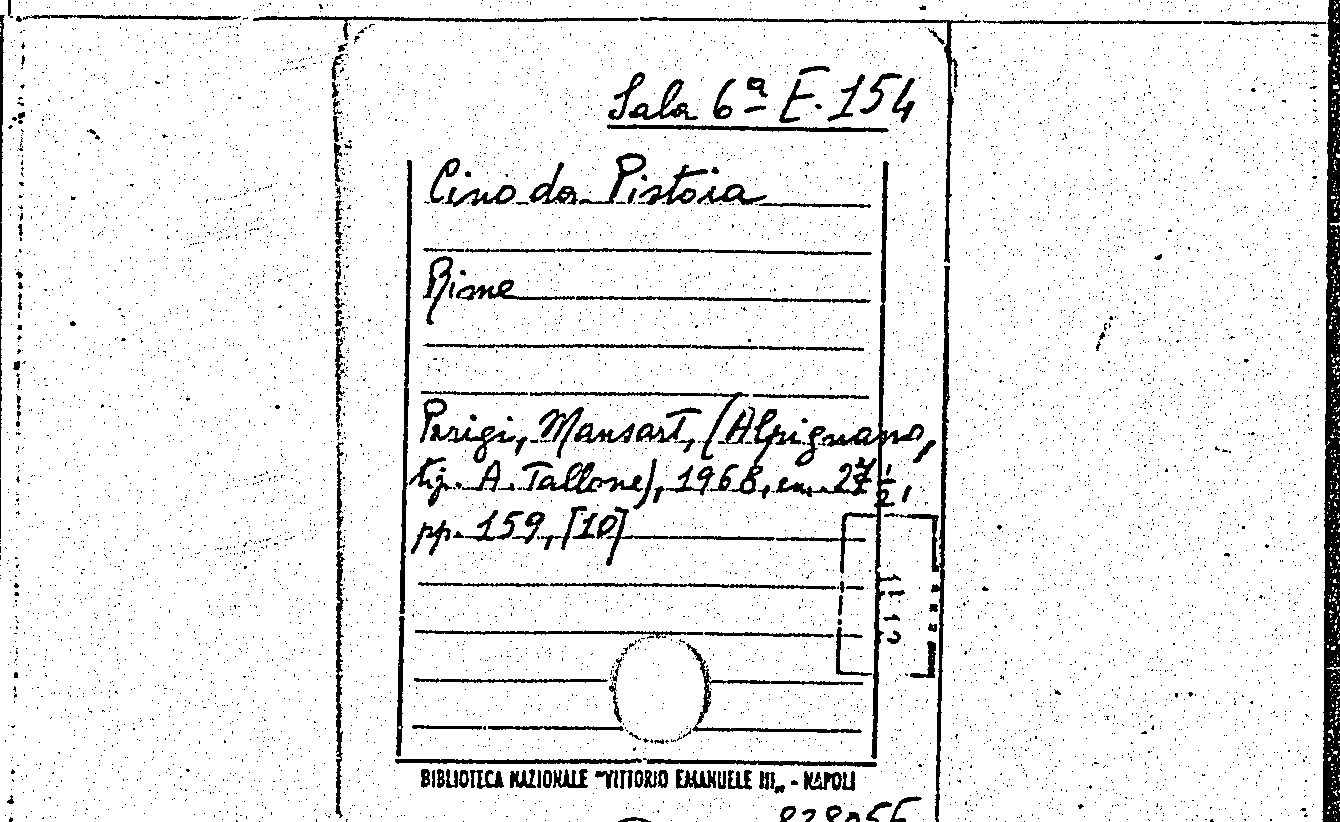 Sala 6ª E. 154
Cino da Pistoia
Rime
Parigi, Mansart, (Alpignano,
tip. A. Tallone), 1968, cm. 27 1/2,
pp. 159, [10]
BIBLIOTECA NAZIONALE "VITTORIO EMANUELE III„ - NAPOLI